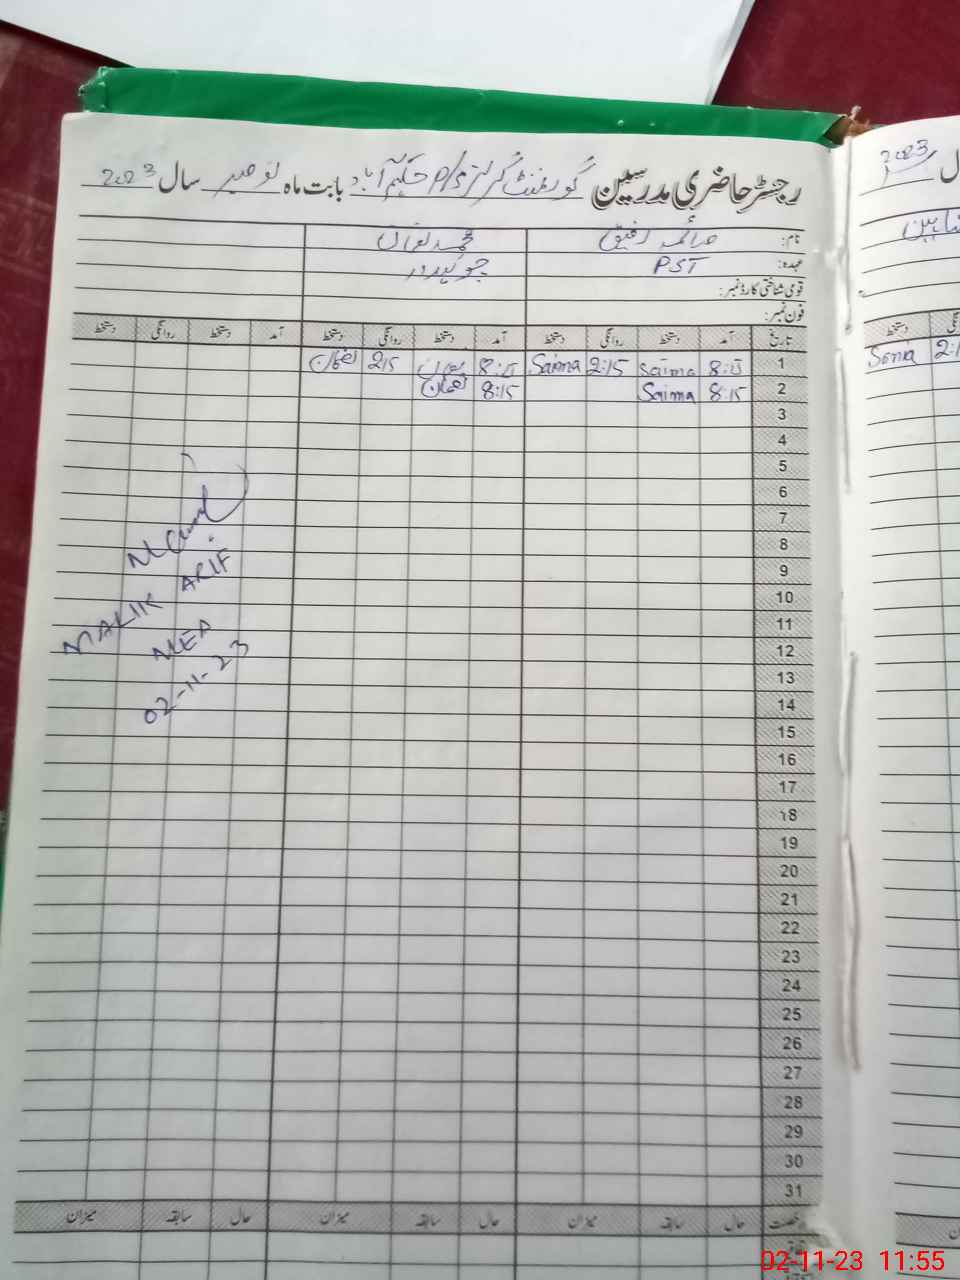 رجسٹر حاضری مدرسین گورنمنٹ گرلز P/S حکیم آباد بابت ماہ نومبر سال 2023
نام: صائمہ رفیق محمد لقمان
عہدہ: PST چوکیدار
قومی شناختی کارڈ نمبر:
فون نمبر:
تاریخ آمد دستخط روانگی دستخط آمد دستخط روانگی دستخط آمد دستخط روانگی دستخط
1 8:15 Saima 2:15 Saima 8:15 لقمان 2:15 لقمان
2 8:15 Saima 8:15 لقمان
3
4
5
6
7
8
9
10
11
12
13
14
15
16
17
18
19
20
21
22
23
24
25
26
27
28
29
30
31
رخصت حال سابقہ میزان حال سابقہ میزان حال سابقہ میزان
MALIK ARIF
MEA
02-11-23
2023
ل
دستخط
Sonia 2:1
02-11-23 11:55